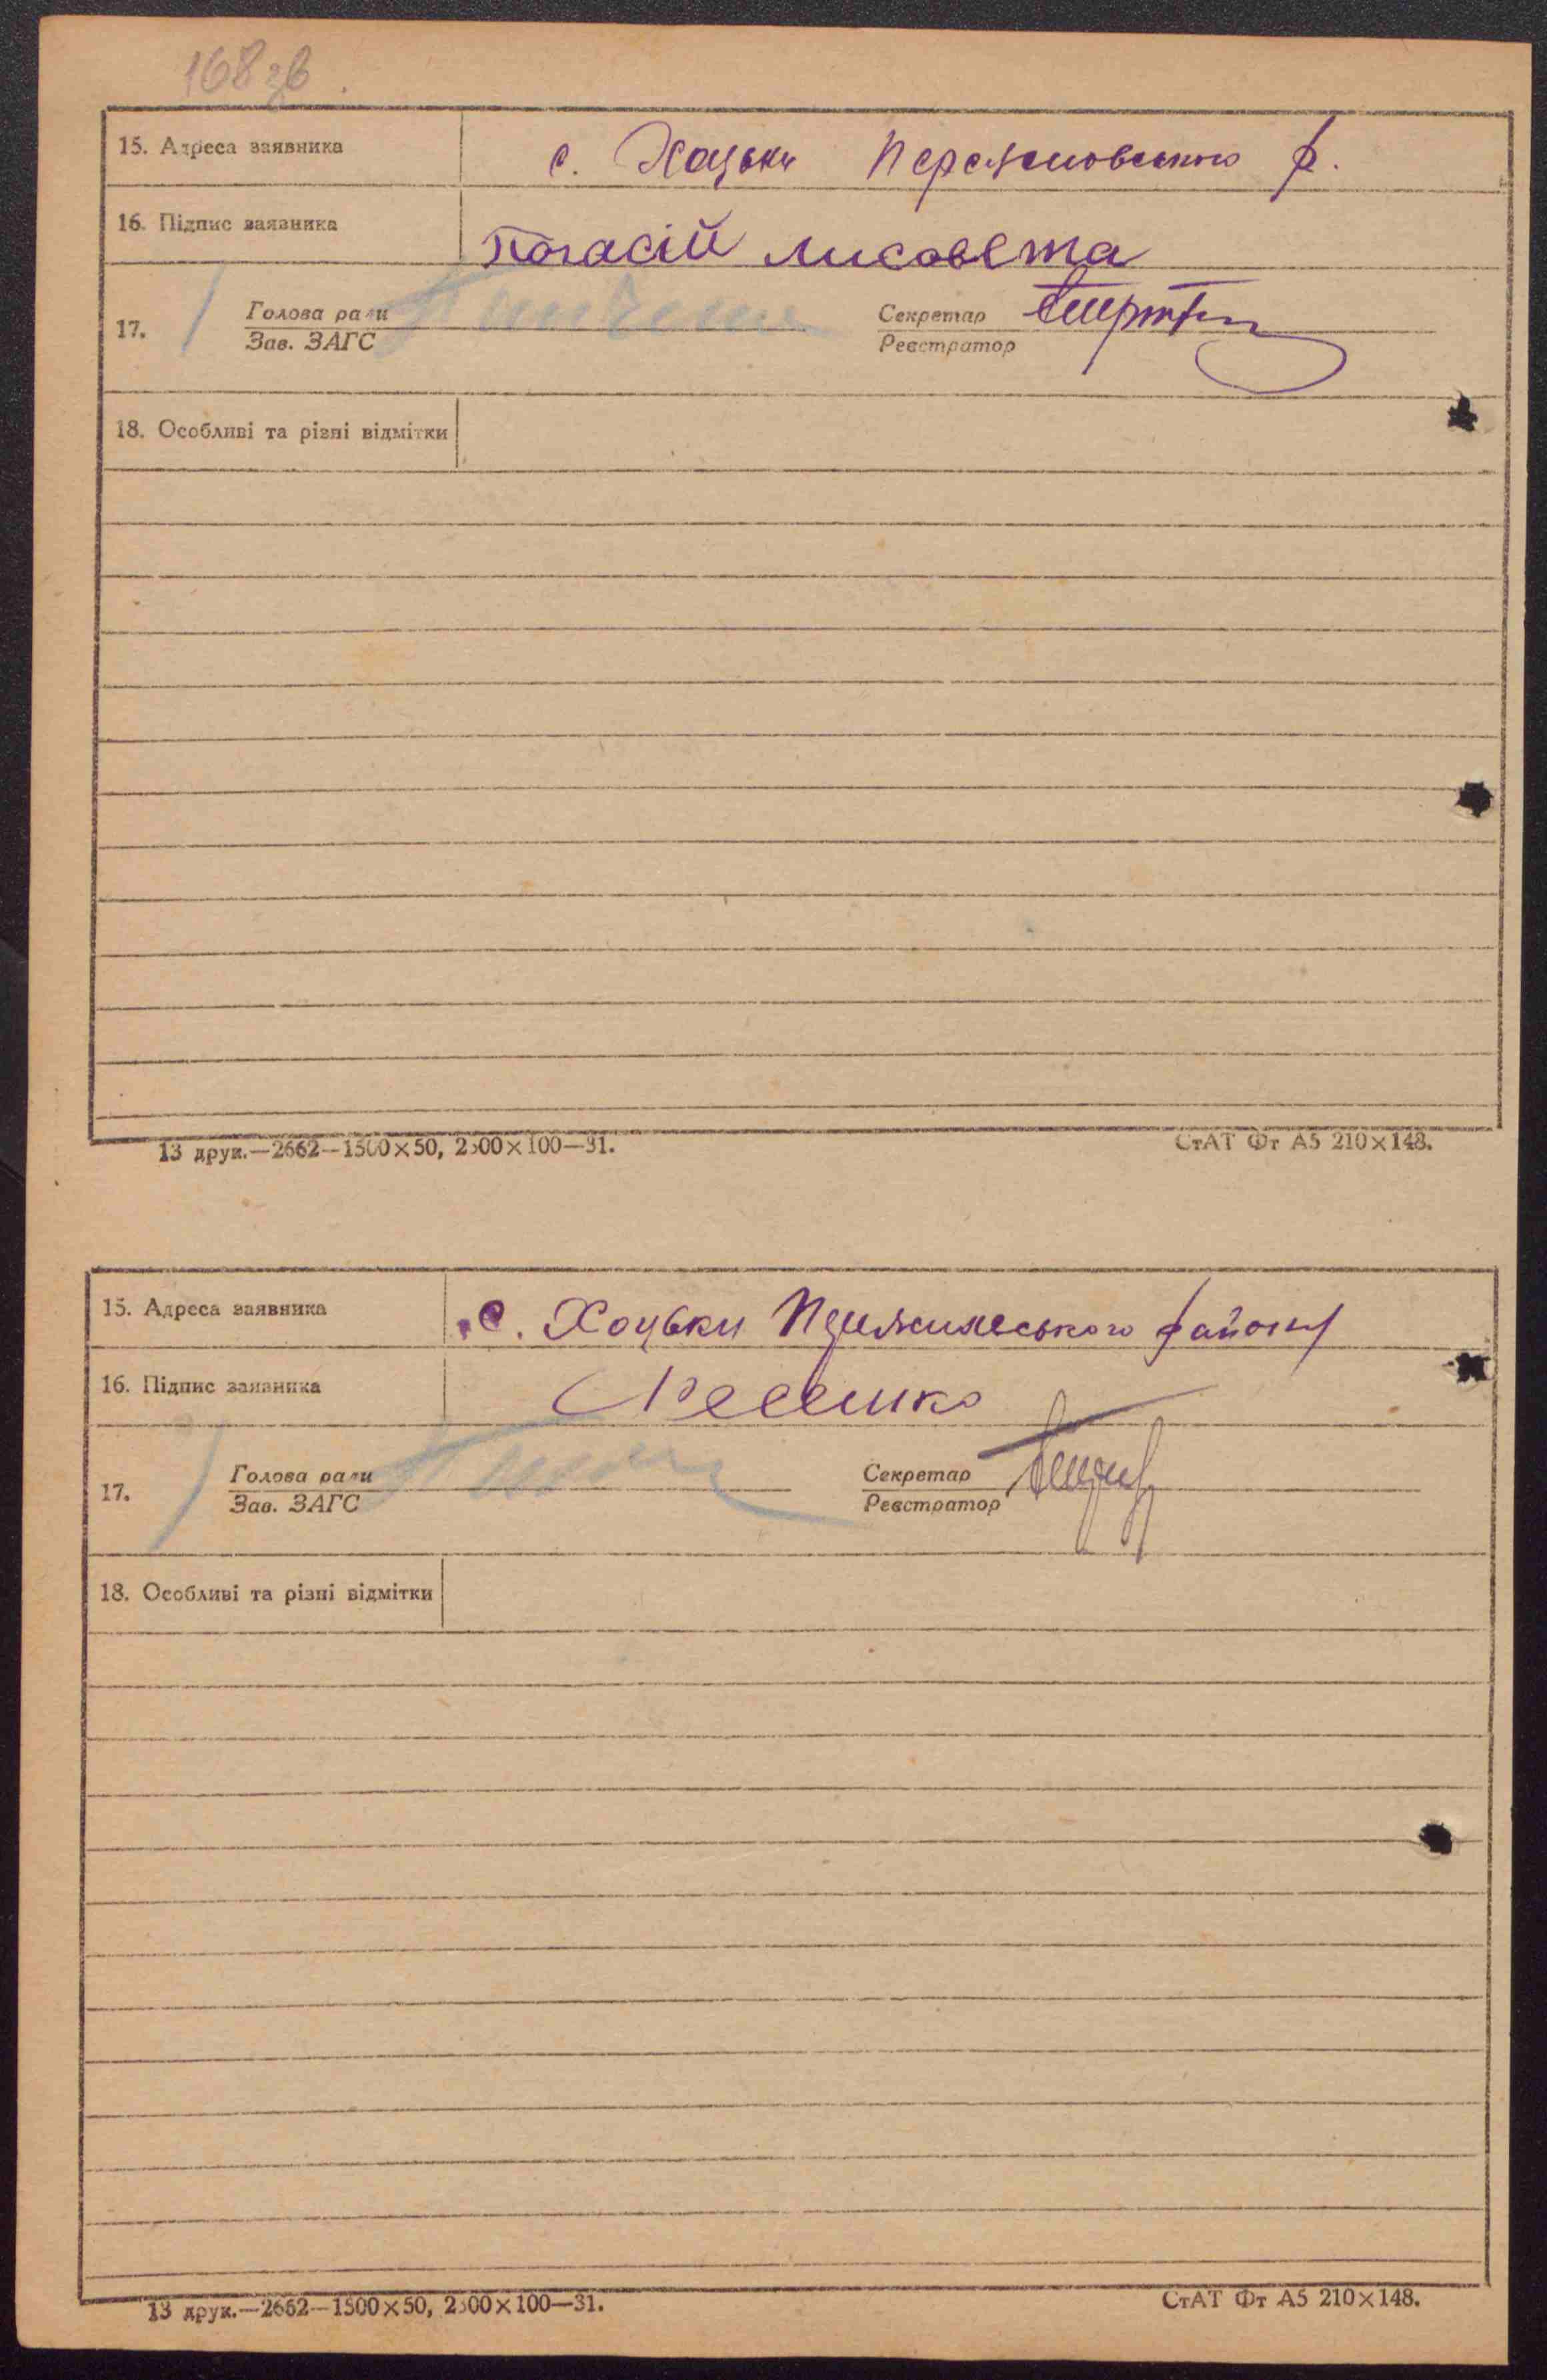 168 зв.
15. Адреса заявника с. Хоцьки р.
16. Підпис заявника Погасій лисовета
17. Голова ради Секретар
Зав. ЗАГС Реєстратор
18. Особливі та різні відмітки
13 друк.—2662—1500×50, 2500×100—31. СтАТ Фт А5 210×148.
15. Адреса заявника с. Хоцьки району
16. Підпис заявника
17. Голова ради Секретар
Зав. ЗАГС Реєстратор
18. Особливі та різні відмітки
13 друк.—2662—1500×50, 2500×100—31. СтАТ Фт А5 210×148.